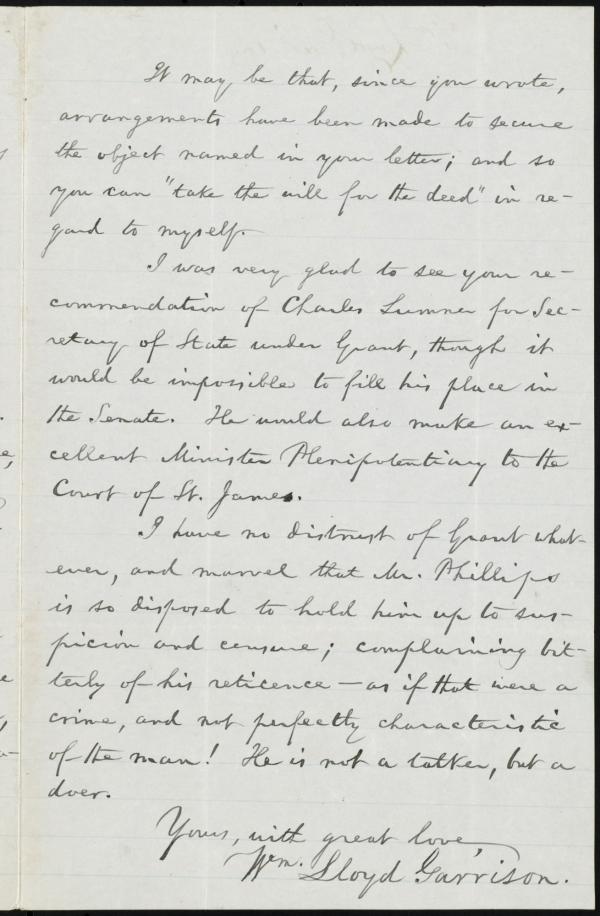 It may be that, since you wrote,
arrangements have been made to secure
the object named in your letter; and so
you can "take the will for the deed" in re-
gard to myself.
I was very glad to see your re-
commendation of Charles Sumner for Sec-
retary of State under Grant, though it
would be impossible to fill his place in
the Senate. He would also make an ex-
cellent Minister Plenipotentiary to the
Court of St. James.
I have no distrust of Grant what-
ever, and marvel that Mr. Phillips
is so disposed to hold him up to sus-
picion and censure; complaining bit-
terly of his reticence — as if that were a
crime, and not perfectly characteristic
of the man! He is not a talker, but a
doer.
Yours, with great love,
Wm. Lloyd Garrison.